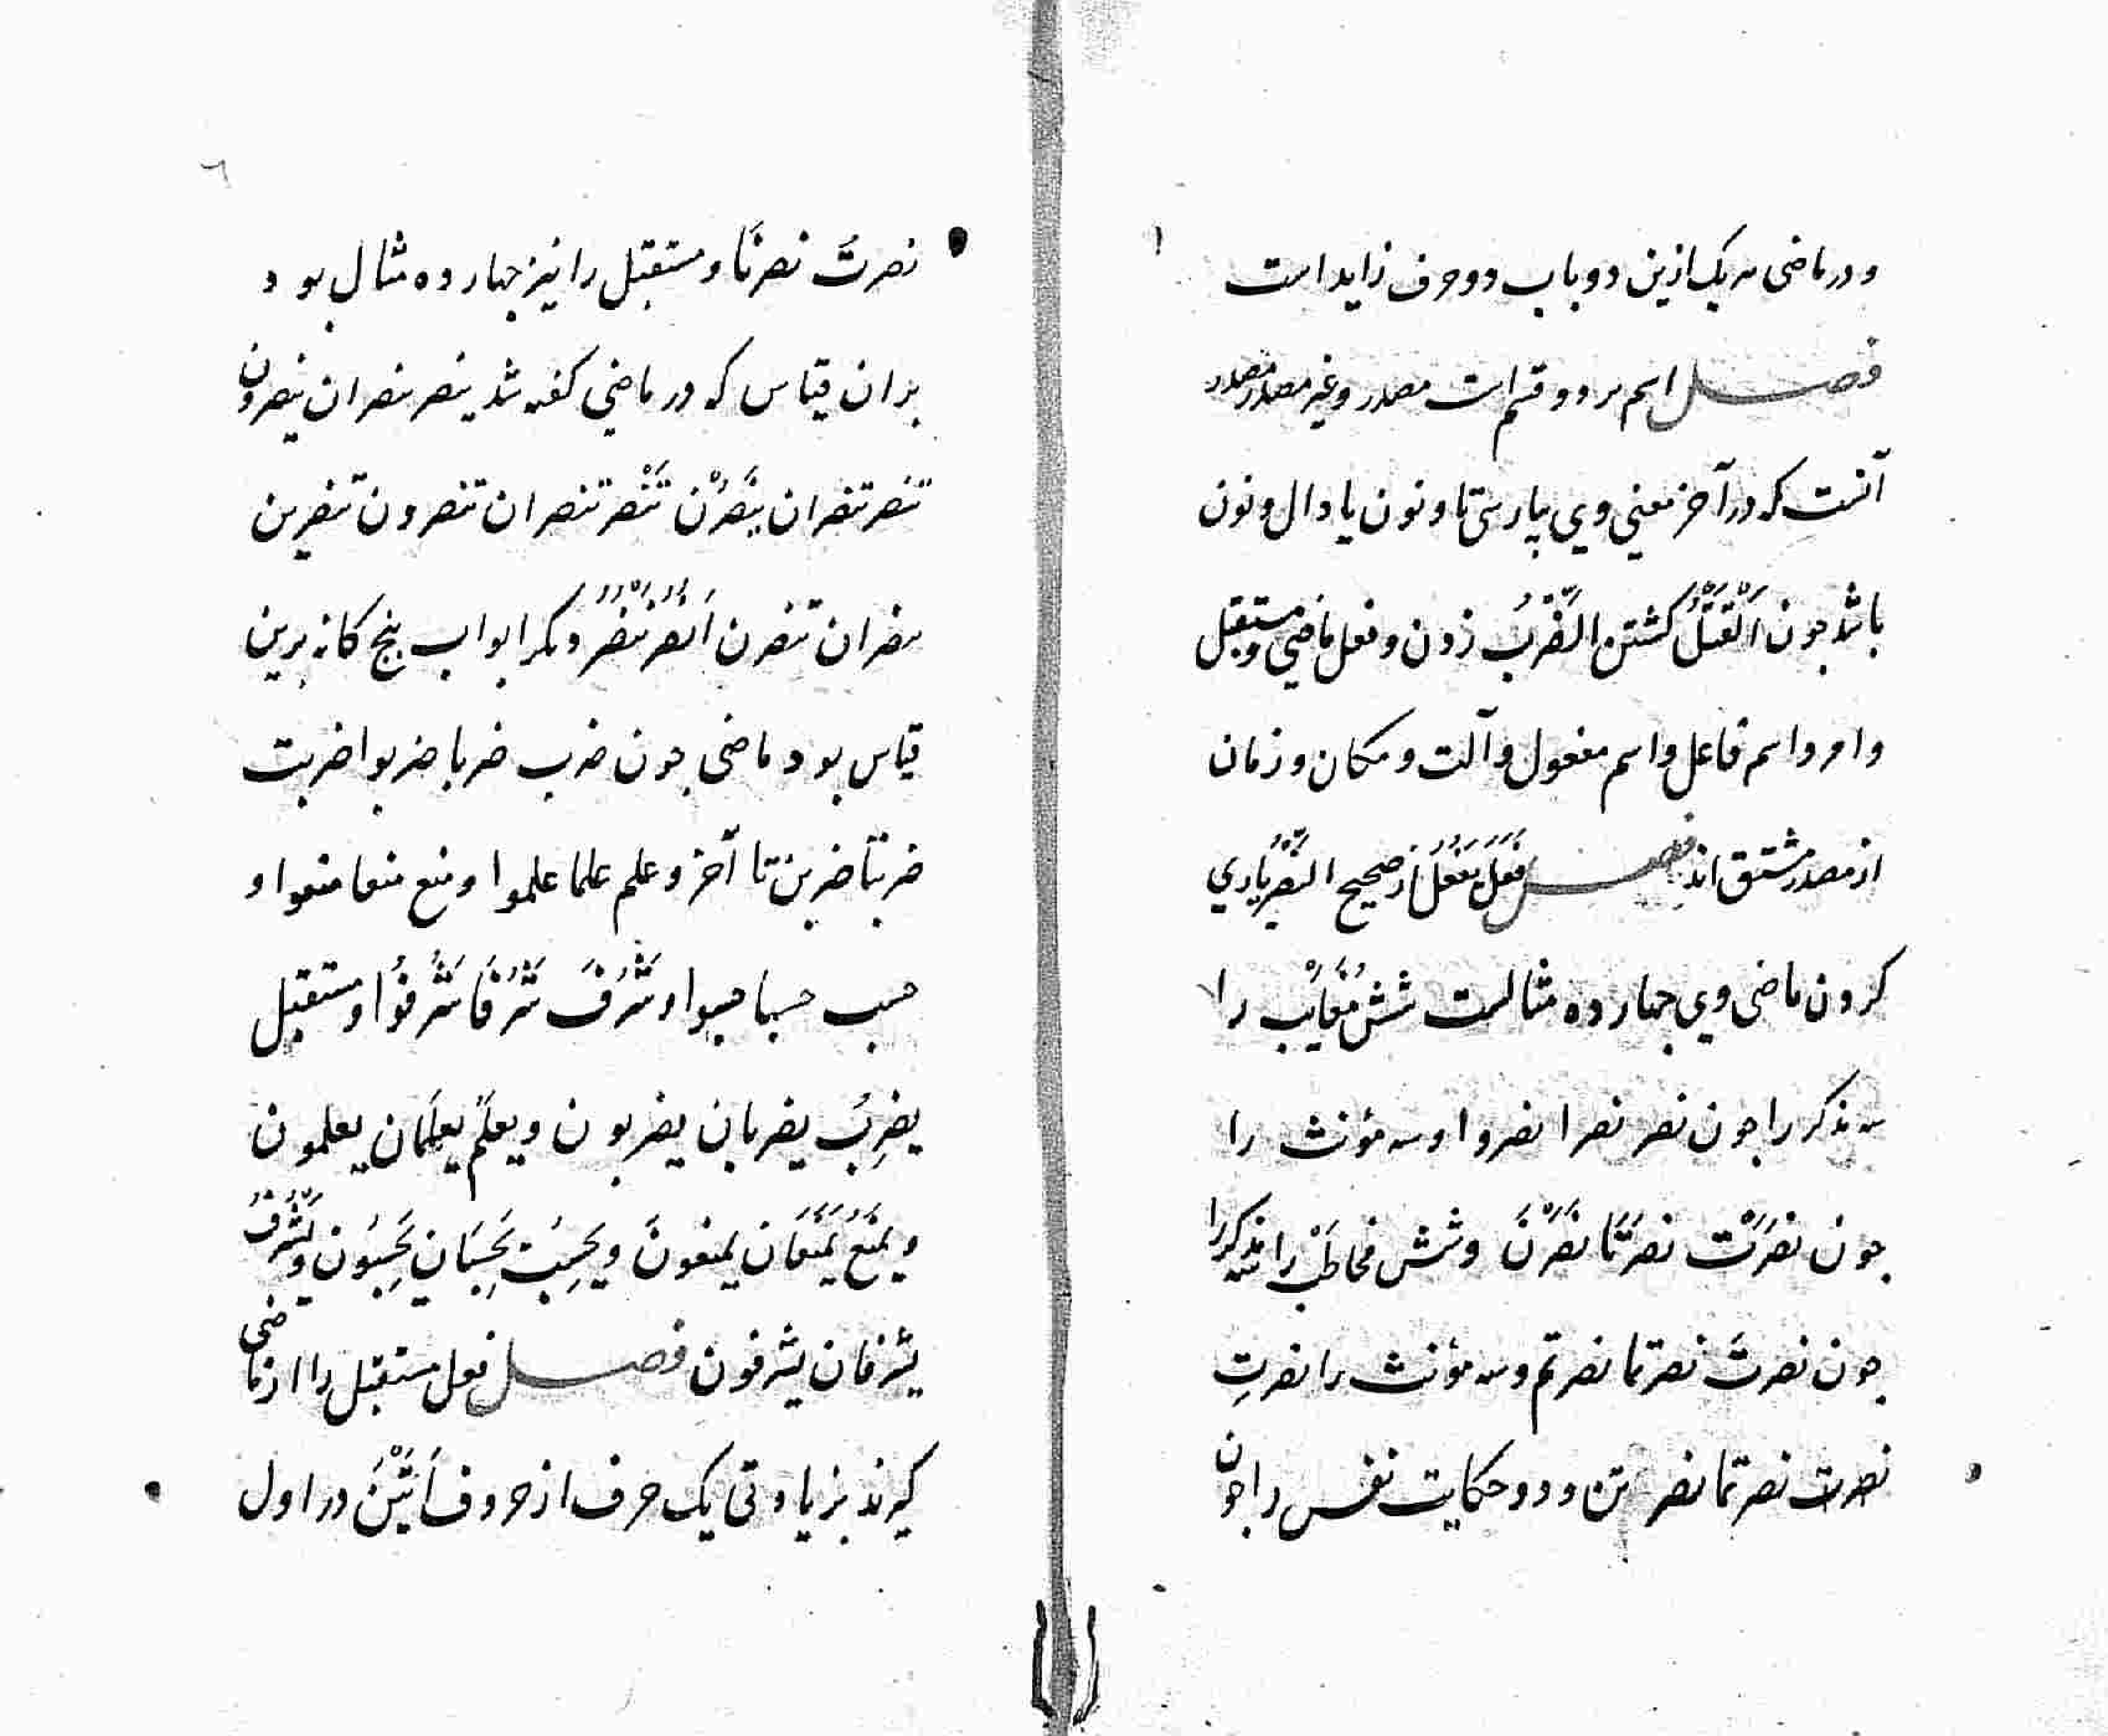 و در ماضی هر یک ازین دو باب دو حرف زاید است
فصل اسم بر دو قسم است مصدر و غیر مصدر مصدر
آنست که در آخر معنی وی پارسی تا و نون یا دال و نون
باشد جون اَلْقَتْلُ کشتن الضَّرْبُ زدن و فعل ماضی و مستقبل
و امر و اسم فاعل و اسم مفعول و آلت و مکان و زمان
از مصدر مشتق اند فصل فَعَلَ یَفْعُلُ از صحیح النَّصْرُ یاری
کردن ماضی وی جهارده مثالست شش مُغَایْب را
سه مذکر را جون نصر نصرا نصروا و سه مؤنث را
جون نصَرَتْ نصَرَتَا نصَرْنَ و شش مخاطَبْ را سه مذکر را
جون نصرتَ نصرتما نصرتم و سه مؤنث را نصرتِ
نصرت نصرتما نصرتن و دو حکایت نفس را جون
٦
نصرتُ نصرنَا و مستقبل را نیز جهارده مثال بود
بران قیاس که در ماضی کفته شد ینصر ینصران ینصرون
تنصر تنصران ینصُرْن تَنْصر تنصران تنصرون تنصرین
تنصران تنصرن اَنْصُرُ نَنْصُرُ و دیکر ابواب پنج کانه برین
قیاس بود ماضی جون ضرب ضربا ضربوا ضربت
ضربتا ضربن تا آخر و علم علما علموا و منع منعا منعوا و
حسب حسبا حسبوا و شَرُفَ شَرُفَا شَرُفُوا و مستقبل
یضرِبُ یضربان یضربون و یعلَم یعلَمان یعلمون
و یَمنَعُ یَمنَعَان یمنعونَ و یحسِبُ یَحسِبَانِ یَحسِبُون و یَشْرُفُ
یشرفان یشرفون فصل فعل مستقبل را از ماضی
کیرند بزیادتی یک حرف از حروف اَتَیْنَ در اول